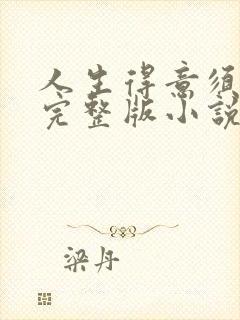 人生得意須
完整版小說
梁丹